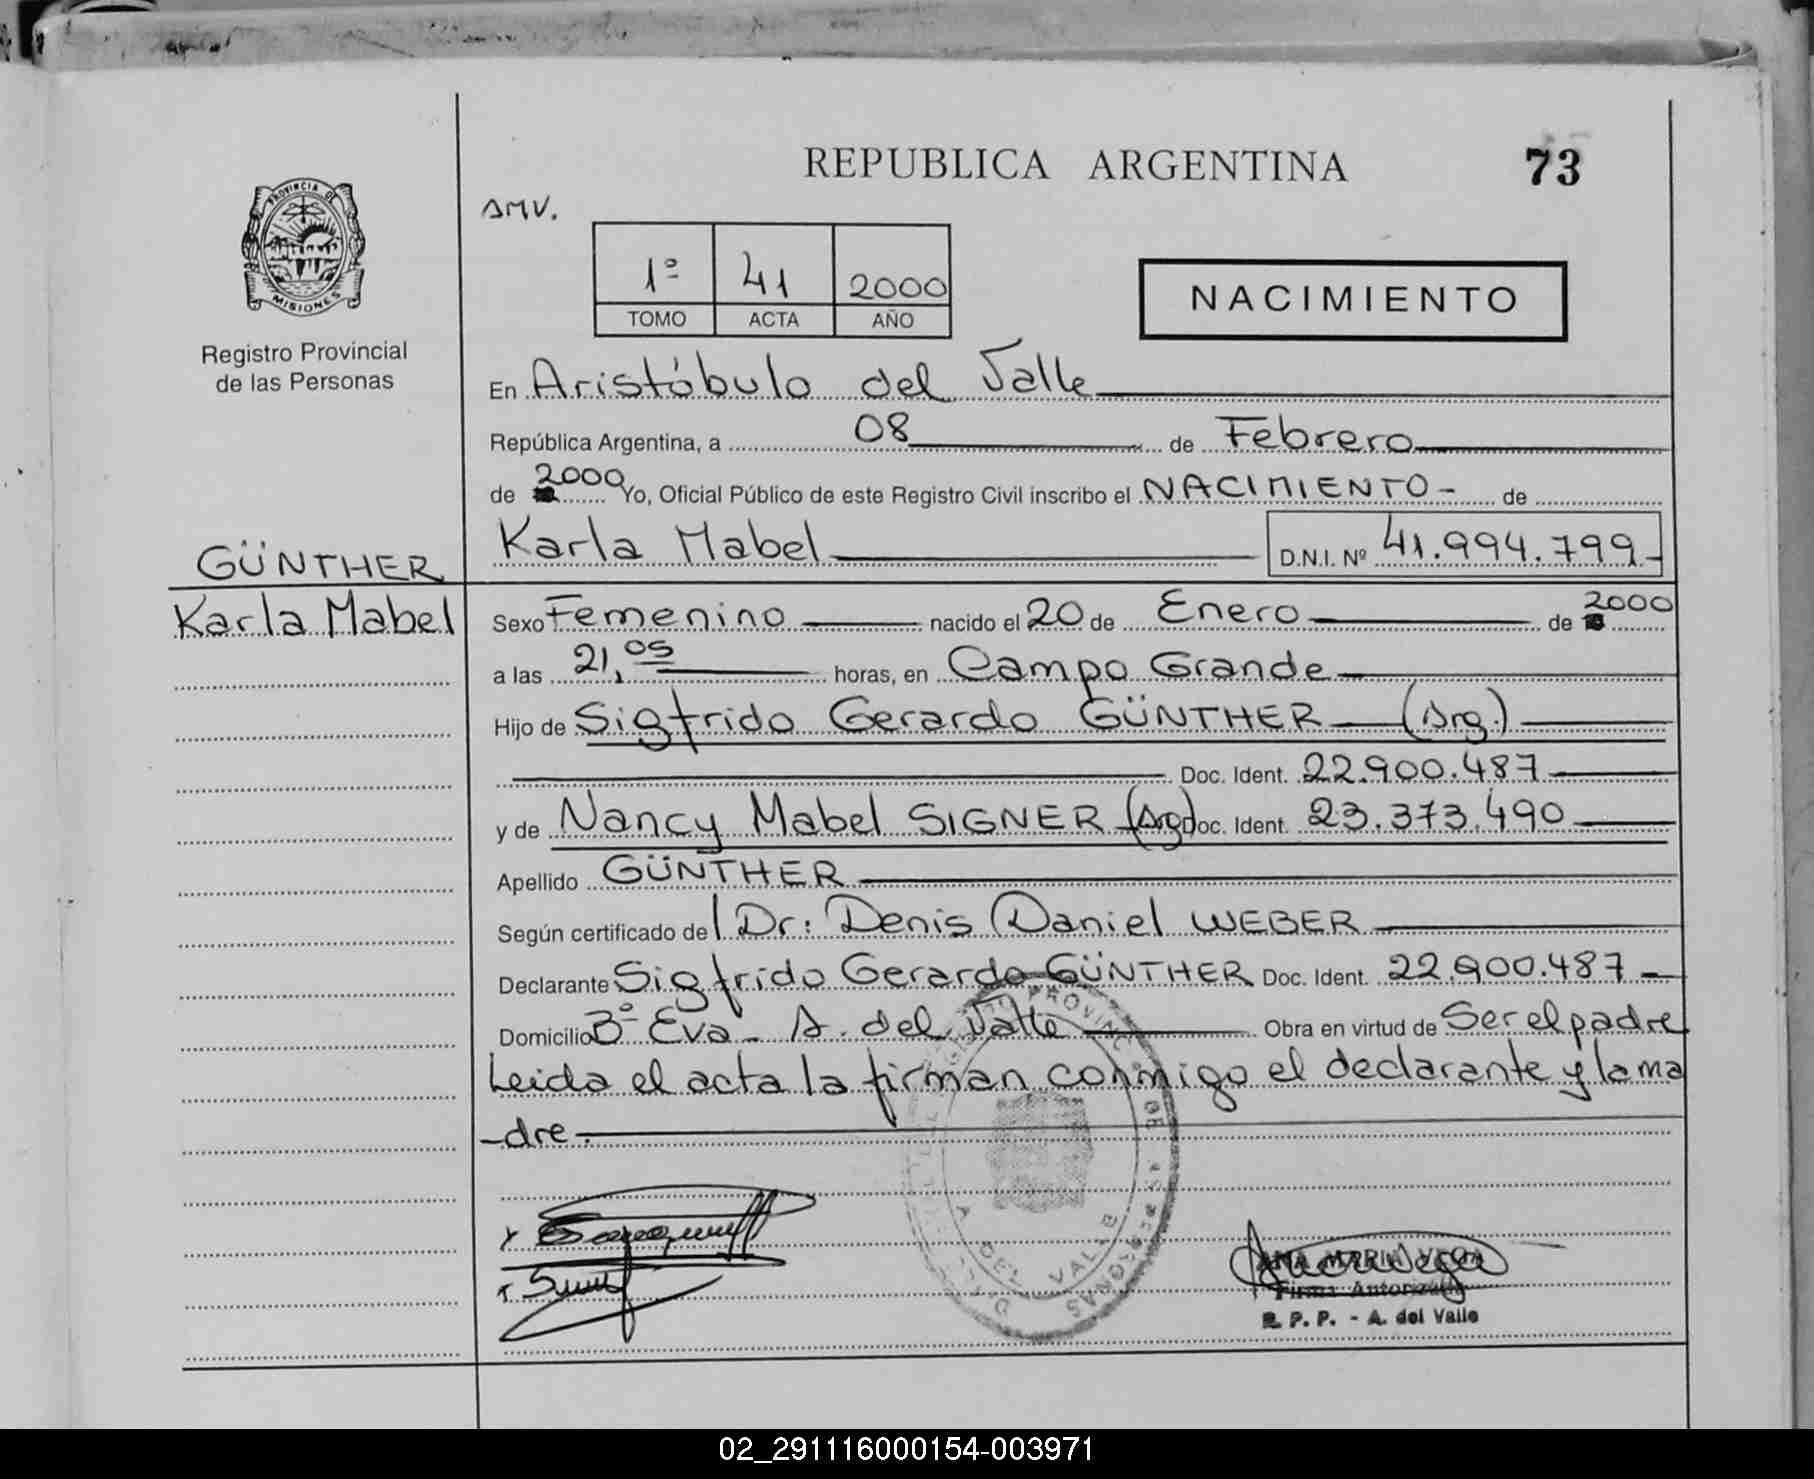 REPUBLICA ARGENTINA
73
PROVINCIA DE
MISIONES
Registro Provincial
de las Personas
AMV.
1º 41 2000
TOMO ACTA AÑO
NACIMIENTO
En Aristóbulo del Valle
República Argentina, a 08 de Febrero
de 2000 Yo, Oficial Público de este Registro Civil inscribo el NACIMIENTO - de
Karla Mabel D.N.I. Nº 41.994.799
GÜNTHER
Karla Mabel
Sexo Femenino nacido el 20 de Enero de 2000
a las 21,05 horas, en Campo Grande
Hijo de Sigfrido Gerardo GÜNTHER (Arg.)
Doc. Ident. 22.900.487
y de Nancy Mabel SIGNER (Arg) Doc. Ident. 23.373.490
Apellido GÜNTHER
Según certificado del Dr: Denis Daniel WEBER
Declarante Sigfrido Gerardo GÜNTHER Doc. Ident. 22.900.487
Domicilio Bº Eva - A. del Valle Obra en virtud de Ser el padre
Leida el acta la firman conmigo el declarante y la ma
-dre.
ANA MARIA VEGA
Firma Autorizada
R. P. P. - A. del Valle
02_291116000154-003971